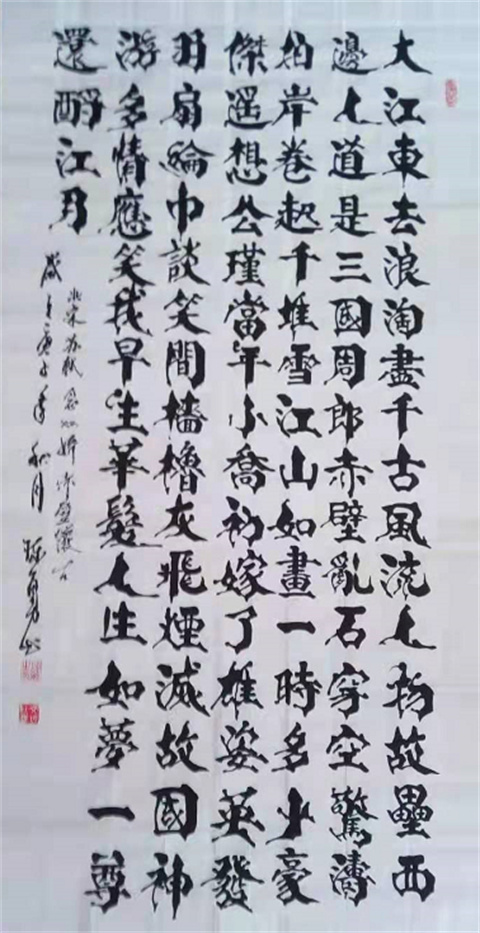 大江東去浪淘盡千古風流人物故壘西
邊人道是三國周郎赤壁亂石穿空驚濤
拍岸卷起千堆雪江山如畫一時多少豪
傑遥想公瑾當年小喬初嫁了雄姿英發
羽扇綸巾談笑間檣櫓灰飛煙滅故國神
游多情應笑我早生華髮人生如夢一尊
還酹江月
北宋苏軾念奴嬌赤壁懷古
庚子年秋月